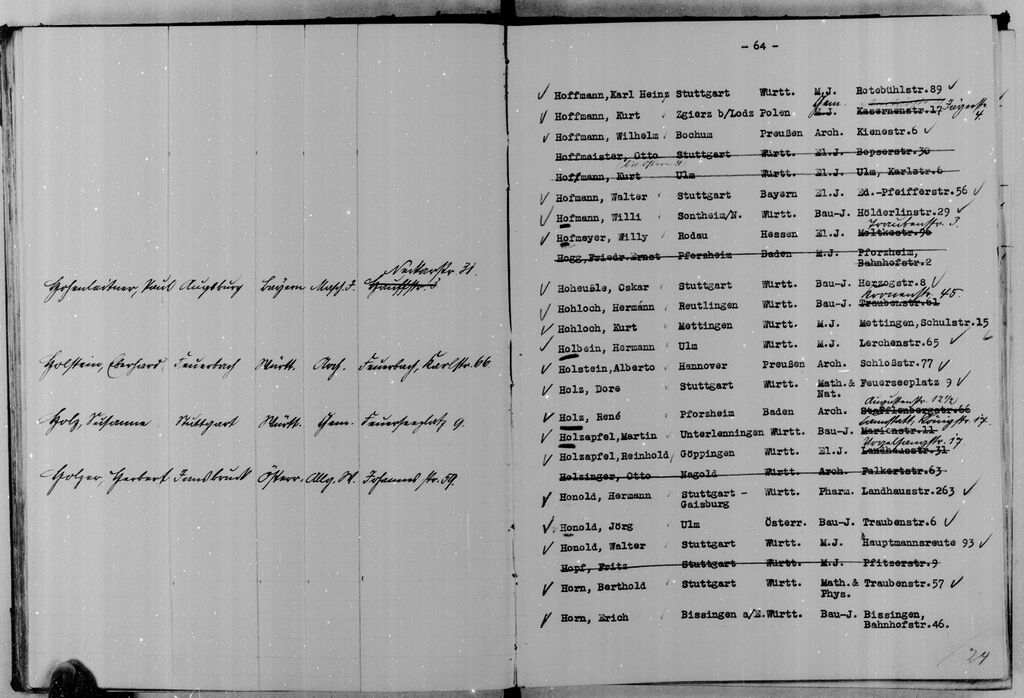 Neckarstr. 31.
Hohenleitner, Paul Augsburg Bayern Masch. J. Hauffstr. 3
Holstein, Eberhard Feuerbach Württ. Arch. Feuerbach, Karlstr. 66
Holz, Susanne Stuttgart Württ. Chem. Feuerseeplatz 9.
Holzer, Herbert Innsbruck Österr. Allg. W. Johannesstr. 59.
- 64 -
Hoffmann, Karl Heinz Stuttgart Württ. M.J. Rotebühlstr.89
Chem. Jägerstr. 4
Hoffmann, Kurt Zgierz b/Lodz Polen M.J. Kasernenstr.17
Hoffmann, Wilhelm Bochum Preußen Arch. Kienestr.6
Hoffmeister, Otto Stuttgart Württ. El.J. Bopserstr.30
Hoffmann, Kurt Ulm Württ. El.J. Ulm, Karlstr.6
Hofmann, Walter Stuttgart Bayern El.J. Ed.-Pfeifferstr.56
Hofmann, Willi Sontheim/N. Württ. Bau-J. Hölderlinstr.29
Traubenstr. 3.
Hofmeyer, Willy Rodau Hessen El.J. Moltkestr.96
Hogg, Friedr.Ernst Pforzheim Baden M.J. Pforzheim,
Bahnhofstr.2
Hoheußle, Oskar Stuttgart Württ. Bau-J. Herzogstr.8
Kronenstr. 45.
Hohloch, Hermann Reutlingen Württ. Bau-J. Traubenstr.61
Hohloch, Kurt Mettingen Württ. M.J. Mettingen,Schulstr.15
Holbein, Hermann Ulm Württ. M.J. Lerchenstr.65
Holstein,Alberto Hannover Preußen Arch. Schloßstr.77
Holz, Dore Stuttgart Württ. Math.& Feuerseeplatz 9
Nat.
Augustenstr. 12½
Holz, René Pforzheim Baden Arch. Stafflenbergstr.66
Cannstatt, Königstr. 17.
Holzapfel,Martin Unterlenningen Württ. Bau-J. Marienstr.11
Vogelsangstr. 17
Holzapfel,Reinhold Göppingen Württ. El.J. Landhausstr.31
Holzinger, Otto Nagold Württ. Arch. Falkertstr.63
Honold, Hermann Stuttgart - Württ. Pharm. Landhausstr.263
Gaisburg
Honold, Jörg Ulm Österr. Bau-J. Traubenstr.6
Honold, Walter Stuttgart Württ. M.J. Hauptmannsreute 93
Hopf, Fritz Stuttgart Württ. M.J. Pfitzerstr.9
Horn, Berthold Stuttgart Württ. Math.& Traubenstr.57
Phys.
Horn, Erich Bissingen a/E.Württ. Bau-J. Bissingen,
Bahnhofstr.46.
24